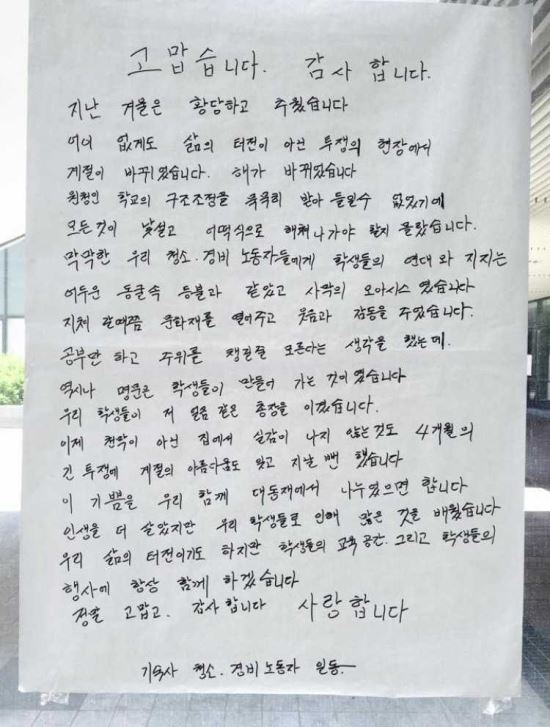 고맙습니다. 감사 합니다.
지난 겨울은 황당하고 추웠습니다
어이 없게도 삶의 터전이 아닌 투쟁의 현장에서
계절이 바뀌었습니다. 해가 바뀌었습니다
원청인 학교의 구조조정을 묵묵히 받아 들일수 없었기에
모든것이 낯설고 어떡식으로 해쳐나가야 할지 몰랐습니다.
막막한 우리 청소.경비 노동자들에게 학생들의 연대와 지지는
어두운 동굴속 등불과 같았고 사막의 오아시스 였습니다
지쳐 갈때쯤 문화재를 열어주고 웃음과 감동을 주었습니다.
공부만 하고 주위를 챙길줄 모른다는 생각을 했는데.
역시나 명문은 학생들이 만들어 가는 것이 였습니다
우리 학생들이 저 얼음 같은 총장을 이겼습니다.
이제 천막이 아닌 집에서 실감이 나지 않는것도 4개월의
긴 투쟁에 계절의 아름다움도 잊고 지날 뻔 했습니다
이 기쁨을 우리 함께 대동재에서 나누었으면 합니다
인생을 더 살았지만 우리 학생들로 인해 많은 것을 배웠습니다
우리 삶의 터전이기도 하지만 학생들의 교육 공간. 그리고 학생들의
행사에 항상 함께 하겠습니다
정말 고맙고. 감사합니다 사랑합니다
기숙사 청소.경비 노동자 일동.